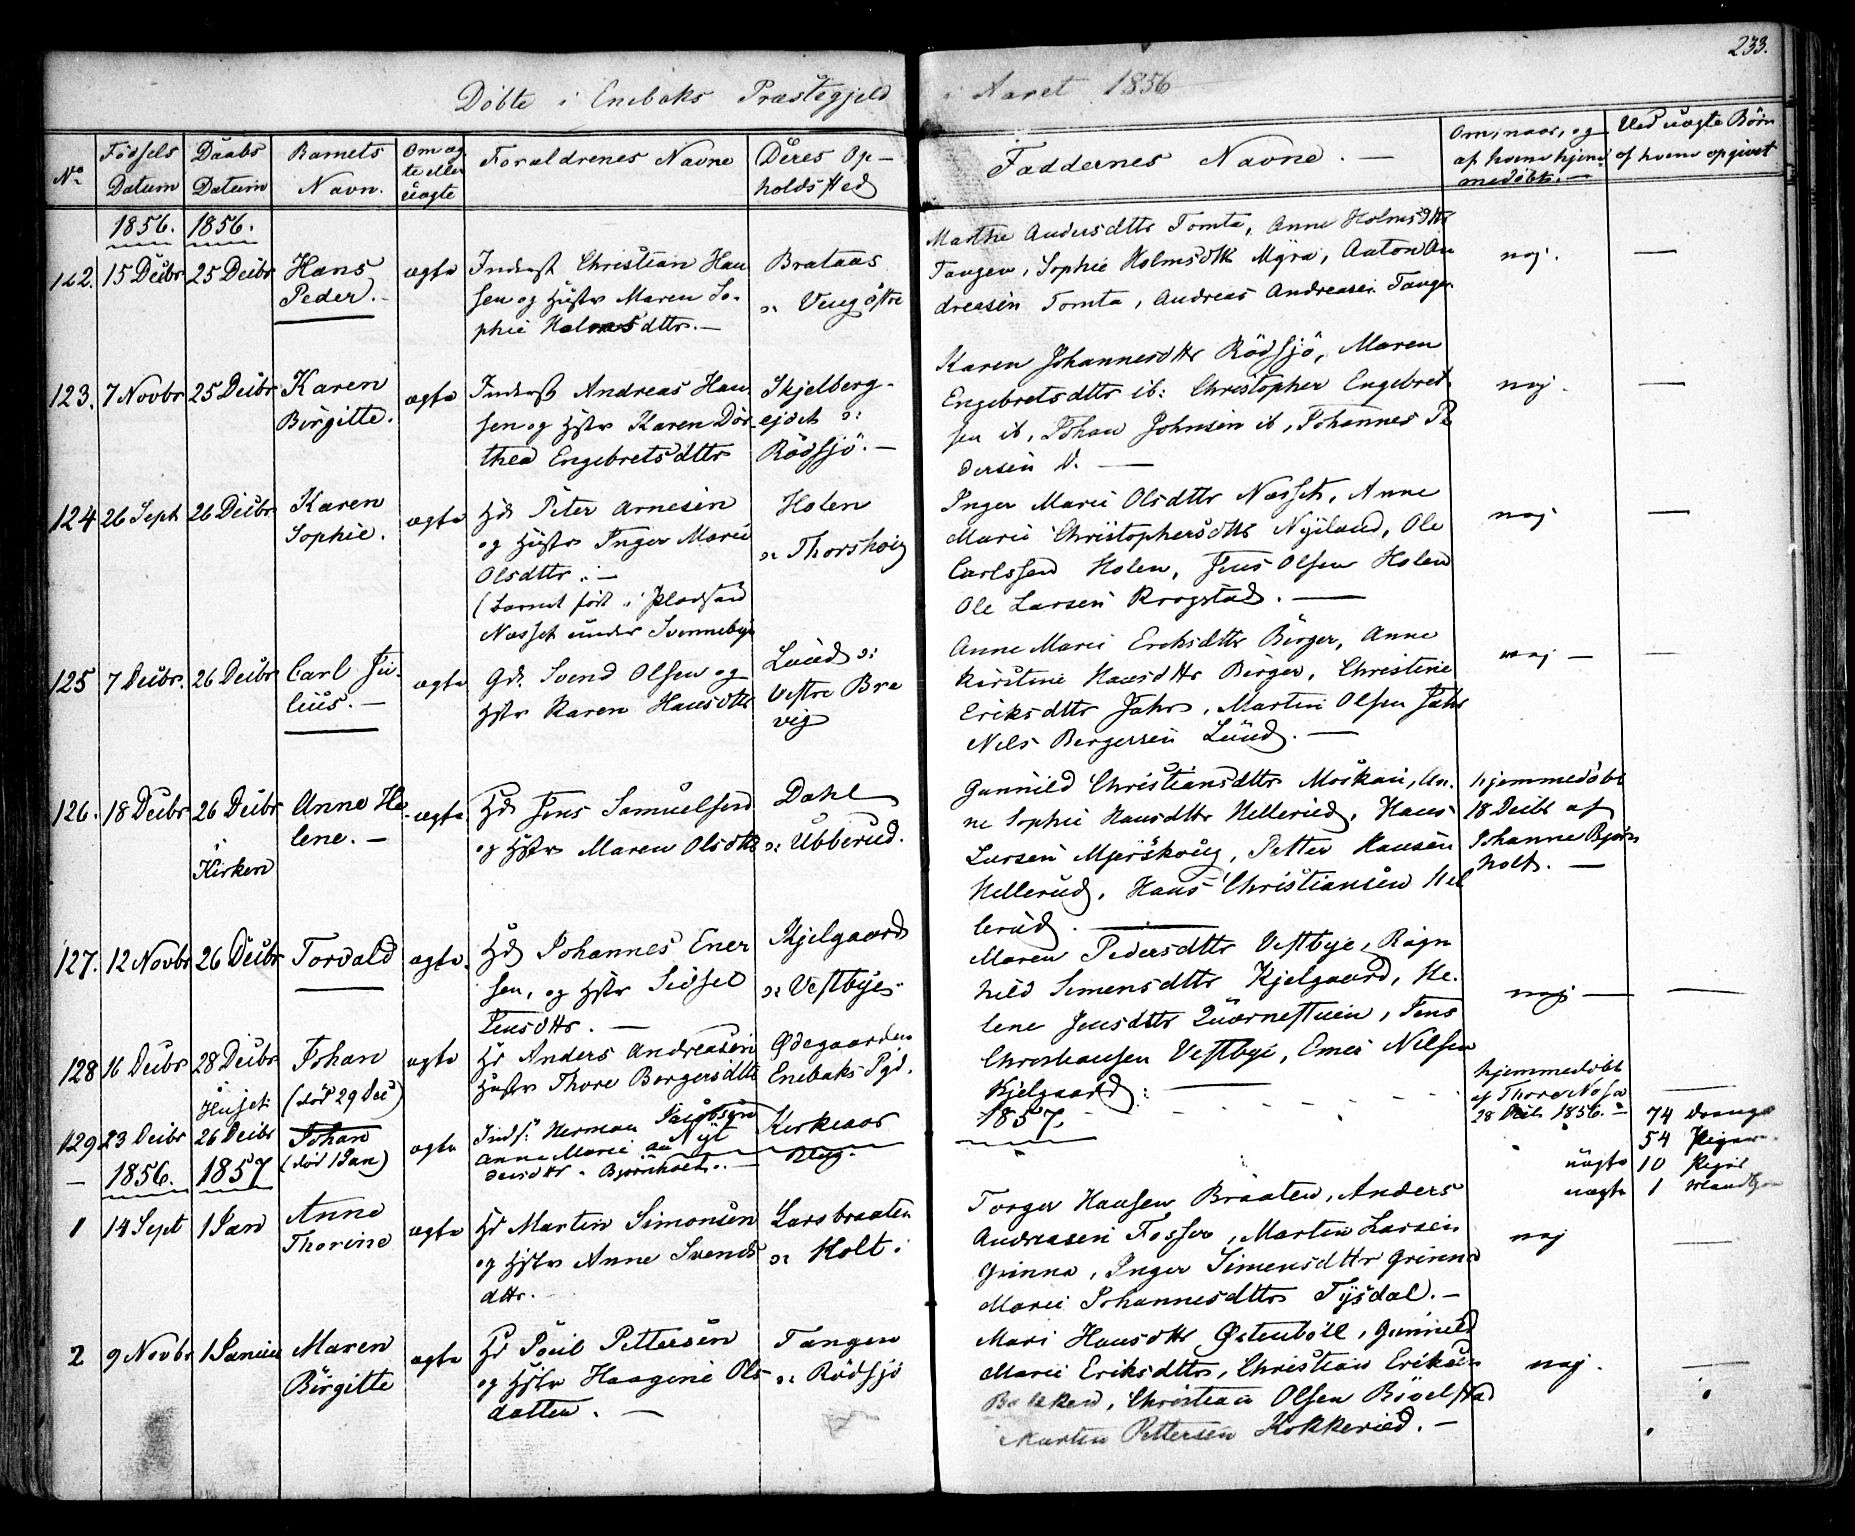 233.
Döbte i Enebaks Præstegjeld i Aaret 1856
No
Fødsels Datum
Daabs Datum
Barnets Navn.
Om æg
te eller
uægte
Forældrenes Navne
Deres Op-
holdssted
Faddernes Navne. —
Om, naar, og
af hvem hjem
medöbt. —
Ved uægte Börn
af hvem opgivet
1856. 1856.
122. 15 Decbr 25 Decbr Hans
Peder. -
ægte
Inderst Christian Han
sen og Hustr Maren So-
phie Holmsdttr. —
Brataas
Veng östre
Marthe Andersdttr Tomta, Anne Holmsdttr
Tangen, Sophie Holmsdttr Myra, Anton An
dreasen Tomta, Andreas Andreasen Tangen
nej. —
123. 7 Novbr 25 Decbr Karen
Birgitte.
ægte
Inderst Andreas Han
sen og Hstr Karen Dor
thea Engebretsdttr
Skjelberg-
ejdet o:
Rödsjö. —
Karen Johannesdttr Rödsjö, Maren
Engebretsdttr ib: Christopher Engebret
sen ib, Johan Johnsen ib, Johannes Pe
dersen
nej. —
124 26 Sept 26 Decbr Karen
Sophie.
ægte
Hd Peter Arnesen
og Hustr Inger Marie
Olsdttr. —
(Barnet født i Pladsen
Næsset under Svennebye
Holen
Thorshoug
Inger Marie Olsdttr Næsset, Anne
Marie Christophersdttr Nyland, Ole
Carlssen Holen, Jens Olsen Holen
Ole Larsen Krogstad. —
nej. —
125 7 Decbr. 26 Decbr Carl Ju-
lius. —
ægte
Gd. Svend Olsen og
Hstr Karen Hansdttr
Lund o:
Vestre Bre
vig
Anne Marie Eriksdttr Börger, Anne
Kirstine Hansdttr Börger, Christine
Eriksdttr Jahr, Martin Olsen Jahr
Nels Bergersen Lund. —
nej — —
126. 18 Decbr 26 Decbr
i
Kirken
Anne He
lene. —
ægte
Hd Jens Samuelsen
og Hstr Maren Olsdttr
Dahl
Ubberud.
Gunnild Christiansdttr Moskau, An-
ne Sophie Hansdttr Hellerud, Hans
Larsen Mjerskoug, Petter Hansen
Hellerud, Hans Christiansen Hel
lerud. —
hjemmedöbt
18 Decbr af
Johanne Bjørn
holt. —
127. 12 Novbr 26 Decbr Torvald
ægte.
Hd Johannes Ener
sen, og Hstr Sidsel
Jensdttr. —
Kjelgaard
Vestbye.
Maren Pedersdttr Vestbye, Ragn
hild Simensdttr Kjelgaard, He-
lene Jensdttr Quærnestuen, Jens
Christiansen Vestbye, Enes Nilsen
Kjelgaard:
nej — —
128 16 Decbr 28 Decbr
Huset
Johan
(död 29 Dec)
ægte
Hd Anders Andreasen
Hustr Thore Borgersdttr
Ødegaarden
Enebaks Pgd.
hjemmedöbt
af Thore
28 Decb. 1856. —
129 23 Decbr 26 Decbr Johan
(död 1 Jan)
ægte
Inds: Herman Jacobsen
Anne Marie An
dersdttr Bjørnholt. —
Kirkeaas
1857.
74 Drenge
54 Piger
uægte 10 Piger
uægte 1
— 1856. 1857
1 14 Sept 1 Jan Anne
Thorine
ægte
Hd Martin Simonsen
og Hstr Anne Svends
dttr.
Larsbraaten
Holt.
Torger Hansen Braaten, Anders
Andreasen Fosser, Martin Larsen
Grinna, Inger Simensdttr Grinna
Marie Johannesdttr Tysdal. —
nej —
2 9 Novbr 1 Januar Maren
Birgitte
ægte
Hd Poul Pettersen
og Hstr Haagine Ols-
datter. —
Tangen
Rödsjö
Mari Hansdttr Østenböll, Gunnild
Marie Eriksdttr, Christian Eriksen
Bakken, Christian Olsen Bövelstad
Martin Pettersen Kokkerud. —
nej. —